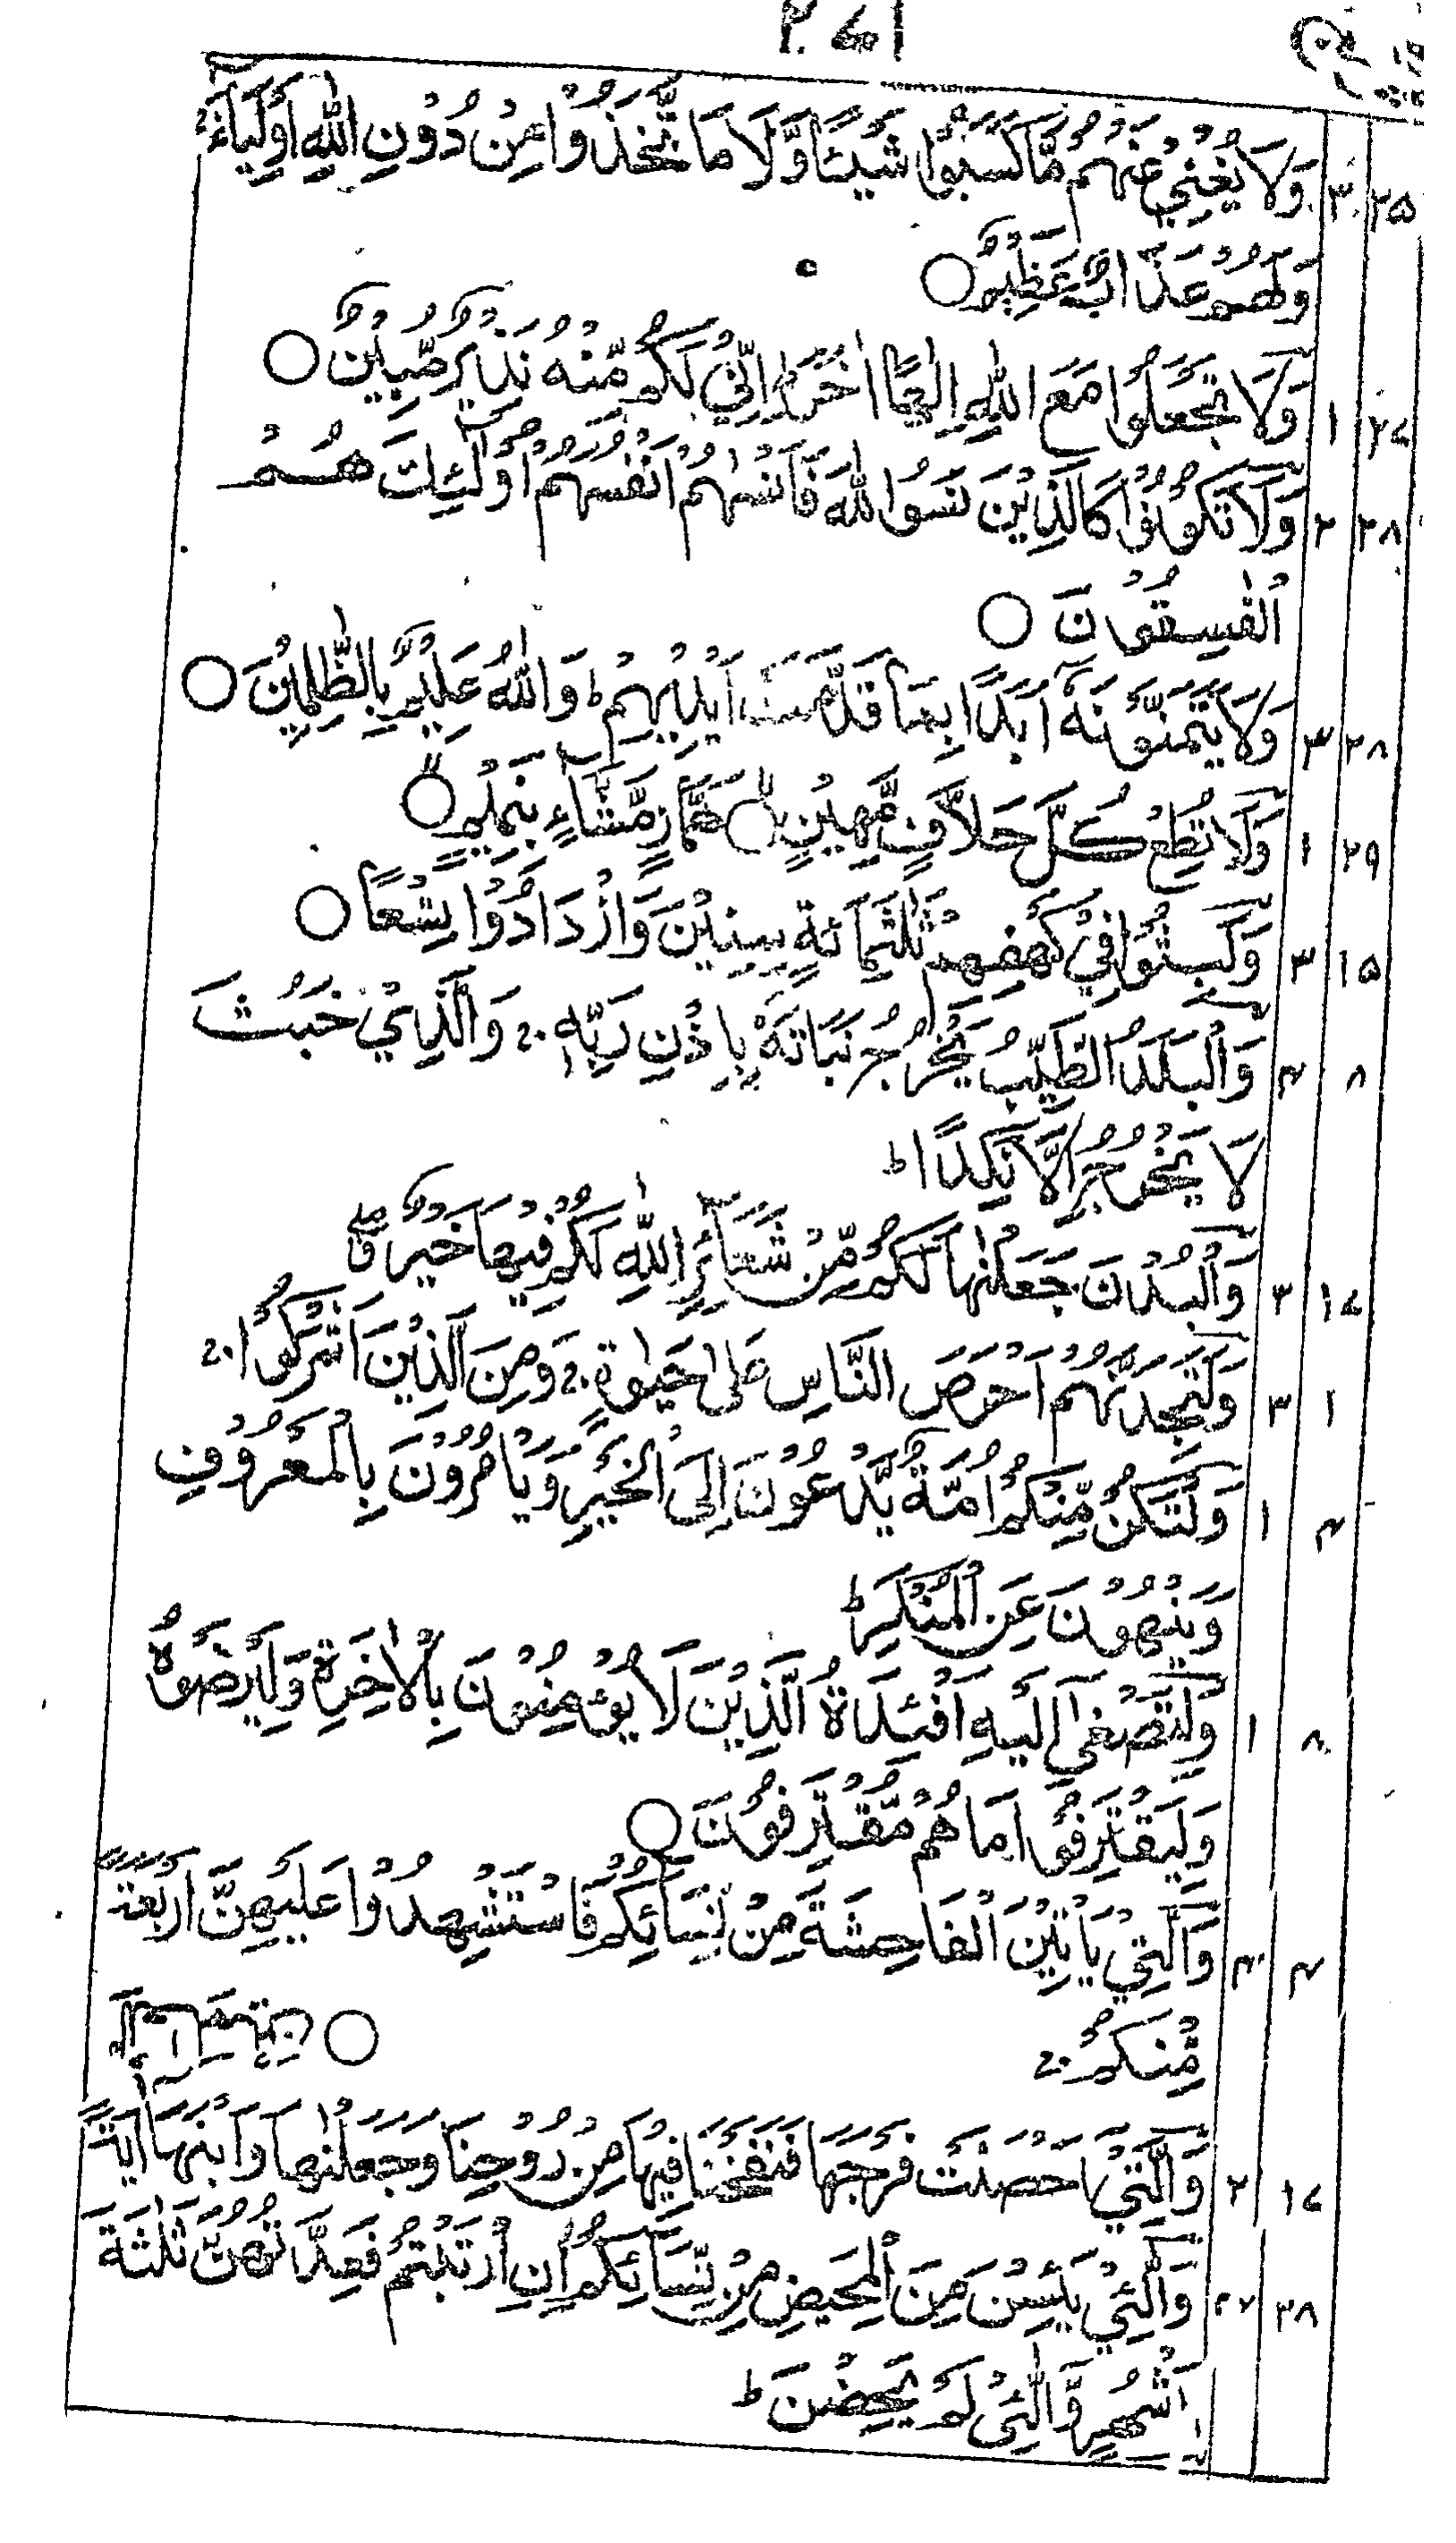 ۲۵ ۳ وَلَا يُغْنِيْ عَنْهُمْ مَّا كَسَبُوْا شَيْئًا وَّلَا مَا تَّخَذُوْا مِنْ دُوْنِ اللّٰهِ اَوْلِيَآءَ ۚ
وَلَهُمْ عَذَابٌ عَظِيْمٌ ○
۲۷ ۱ وَلَا تَجْعَلُوْا مَعَ اللّٰهِ اِلٰهًا اٰخَرَ ؕ اِنِّيْ لَكُمْ مِّنْهُ نَذِيْرٌ مُّبِيْنٌ ○
۲۸ ۲ وَلَا تَكُوْنُوْا كَالَّذِيْنَ نَسُوا اللّٰهَ فَاَنْسٰىهُمْ اَنْفُسَهُمْ ؕ اُولٰٓئِكَ هُمُ
الْفٰسِقُوْنَ ○
۲۸ ۳ وَلَا يَتَمَنَّوْنَهٗٓ اَبَدًا بِمَا قَدَّمَتْ اَيْدِيْهِمْ ؕ وَاللّٰهُ عَلِيْمٌ بِالظّٰلِمِيْنَ ○
۲۹ ۱ وَلَا تُطِعْ كُلَّ حَلَّافٍ مَّهِيْنٍ ○ هَمَّازٍ مَّشَّآءٍ بِنَمِيْمٍ ○
۱۵ ۳ وَلَبِثُوْا فِيْ كَهْفِهِمْ ثَلٰثَمِائَةٍ سِنِيْنَ وَازْدَادُوْا تِسْعًا ○
۸ ۴ وَالْبَلَدُ الطَّيِّبُ يَخْرُجُ نَبَاتُهٗ بِاِذْنِ رَبِّهٖ ۚ وَالَّذِيْ خَبُثَ
لَا يَخْرُجُ اِلَّا نَكِدًا ؕ
۱۷ ۳ وَالْبُدْنَ جَعَلْنٰهَا لَكُمْ مِّنْ شَعَآئِرِ اللّٰهِ لَكُمْ فِيْهَا خَيْرٌ
۱ ۳ وَلَتَجِدَنَّهُمْ اَحْرَصَ النَّاسِ عَلٰى حَيٰوةٍ ۚ وَمِنَ الَّذِيْنَ اَشْرَكُوْا ۚ
۴ ۱ وَلْتَكُنْ مِّنْكُمْ اُمَّةٌ يَّدْعُوْنَ اِلَى الْخَيْرِ وَيَاْمُرُوْنَ بِالْمَعْرُوْفِ
وَيَنْهَوْنَ عَنِ الْمُنْكَرِ ؕ
۸ ۱ وَلِتَصْغٰٓى اِلَيْهِ اَفْئِدَةُ الَّذِيْنَ لَا يُؤْمِنُوْنَ بِالْاٰخِرَةِ وَلِيَرْضَوْهُ
وَلِيَقْتَرِفُوْا مَا هُمْ مُّقْتَرِفُوْنَ ○
۴ ۴ وَالّٰتِيْ يَاْتِيْنَ الْفَاحِشَةَ مِنْ نِّسَآئِكُمْ فَاسْتَشْهِدُوْا عَلَيْهِنَّ اَرْبَعَةً
مِّنْكُمْ ۚ ○
۱۷ ۲ وَالَّتِيْٓ اَحْصَنَتْ فَرْجَهَا فَنَفَخْنَا فِيْهَا مِنْ رُّوْحِنَا وَجَعَلْنٰهَا وَابْنَهَآ اٰيَةً
۲۸ وَالّٰٓئِيْ يَئِسْنَ مِنَ الْمَحِيْضِ مِنْ نِّسَآئِكُمْ اِنِ ارْتَبْتُمْ فَعِدَّتُهُنَّ ثَلٰثَةُ
اَشْهُرٍ وَّالّٰٓئِيْ لَمْ يَحِضْنَ ؕ